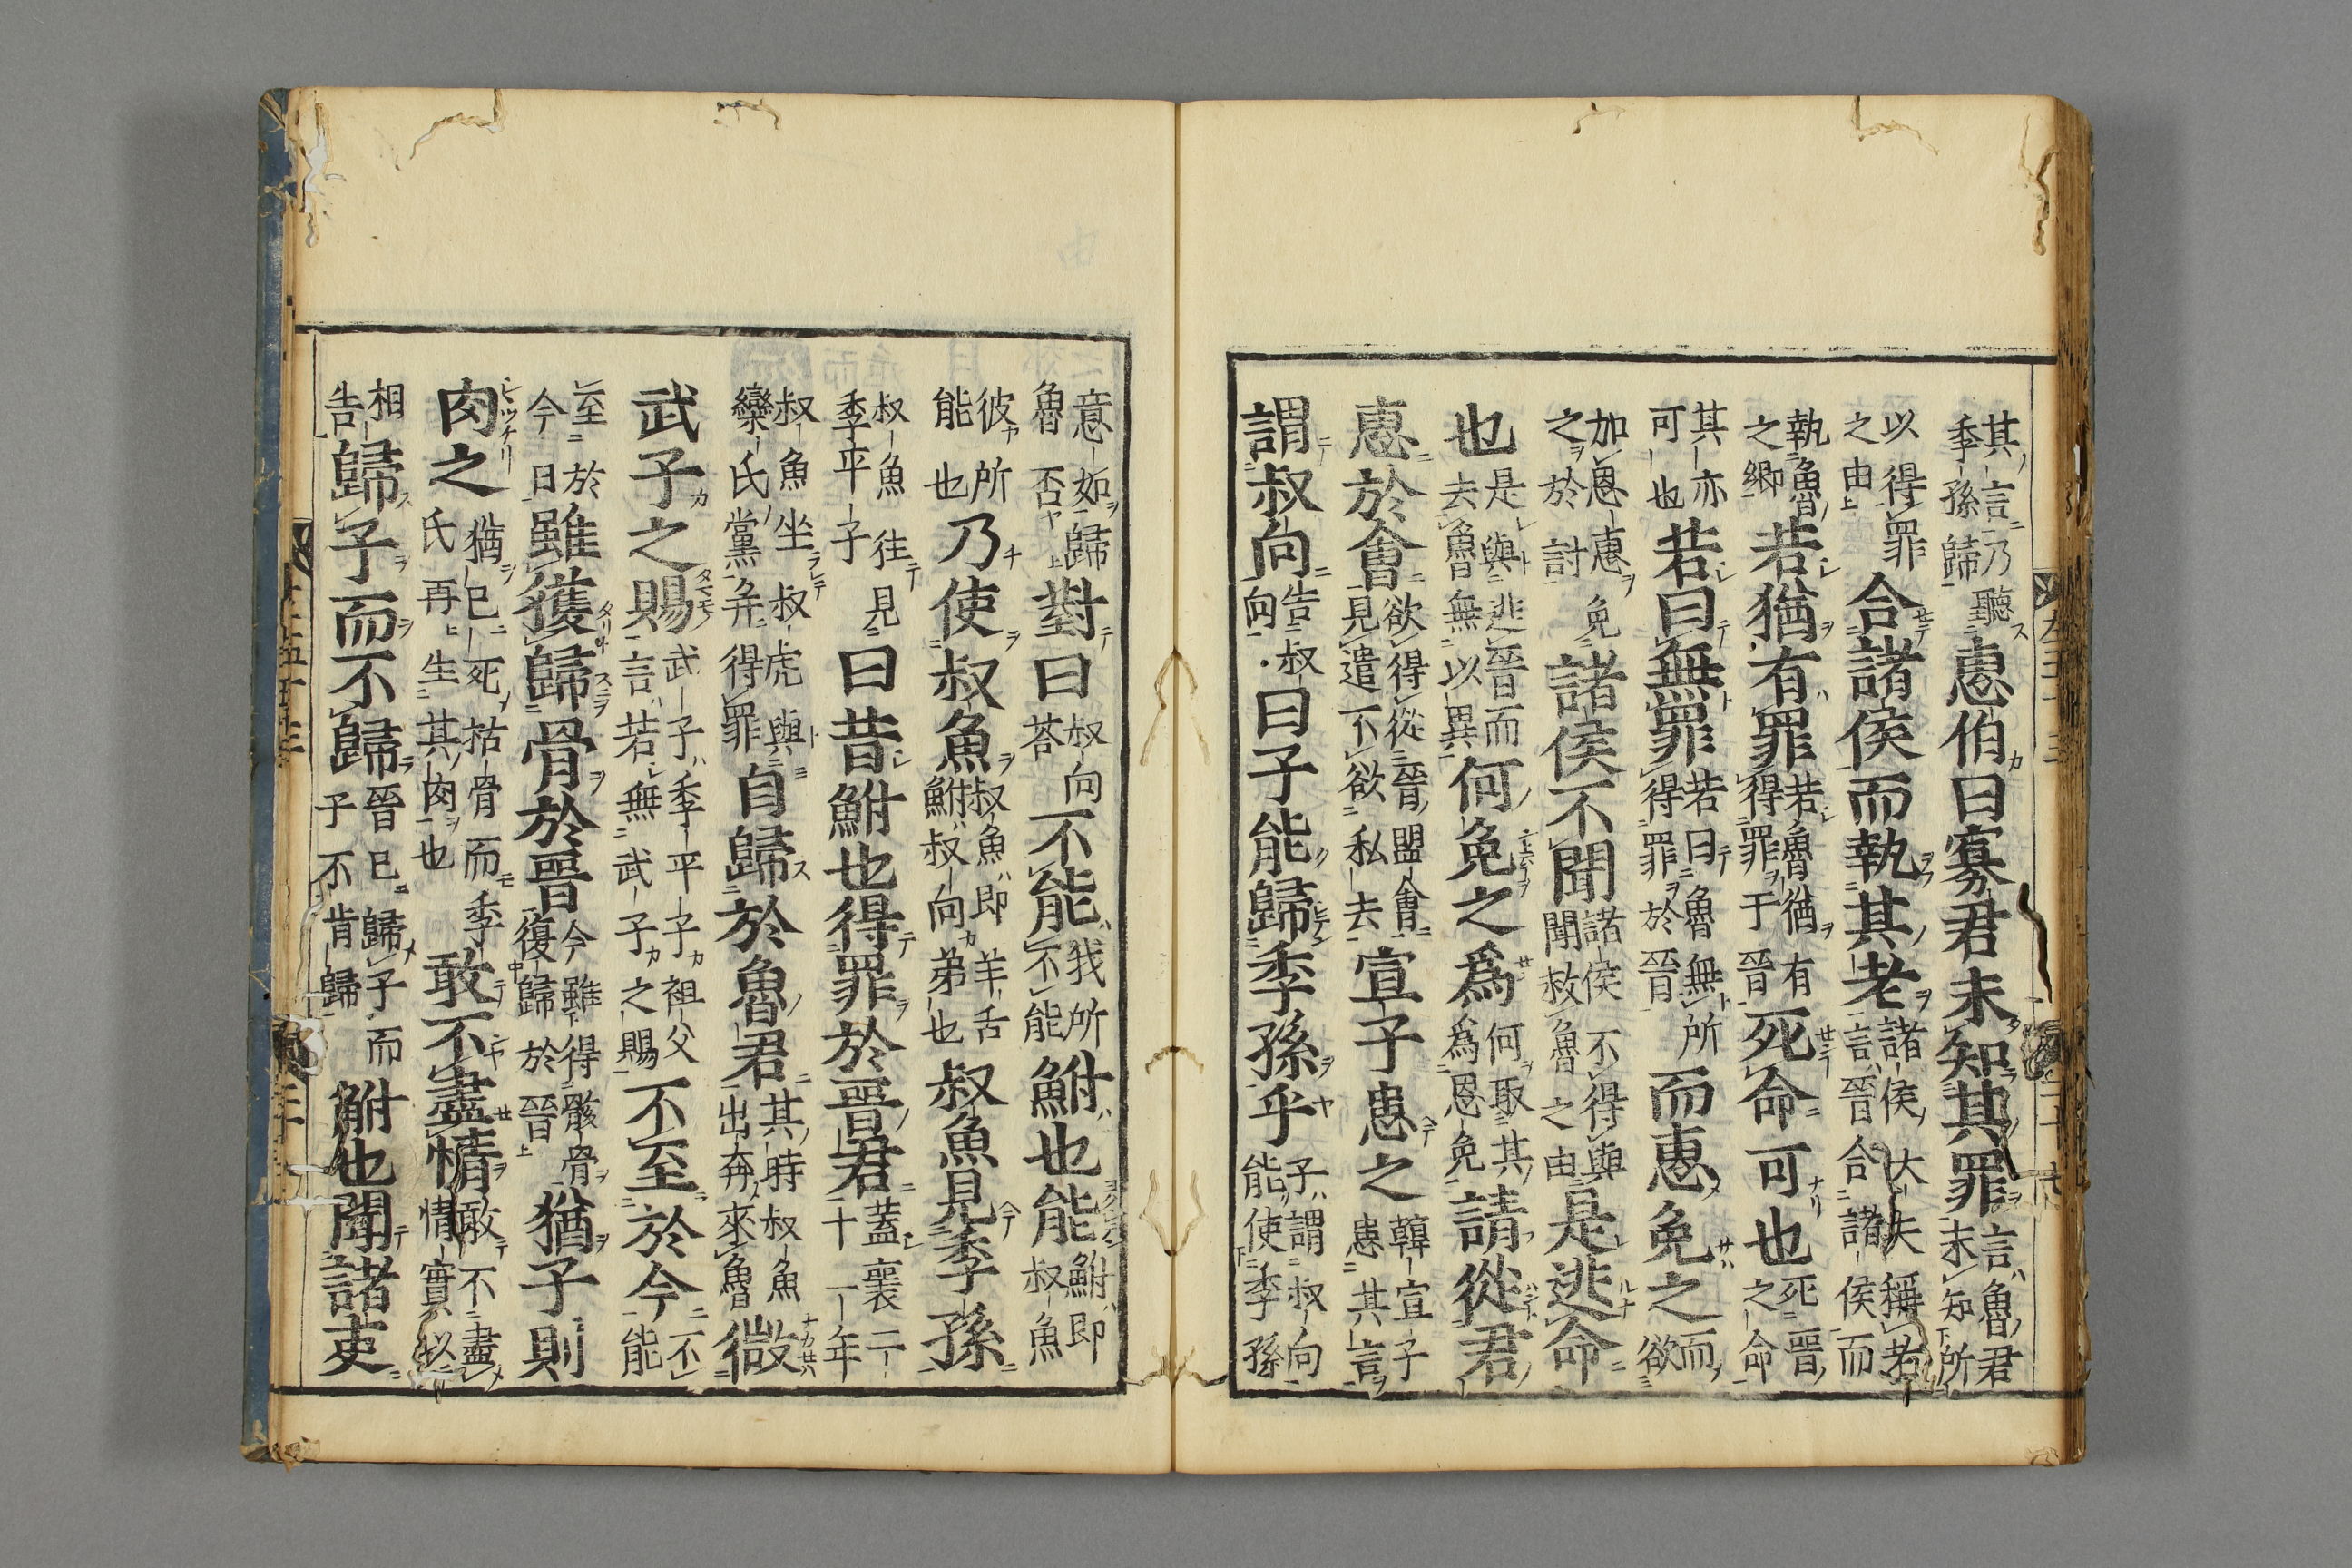 其言乃聽季孫歸惠伯曰寡君未知其罪言魯君未知所
以得罪之由合諸侯而執其老諸侯大夫稱老言晉合諸侯而
執魯之卿若猶有罪若魯猶有得罪于晉死命可也死晉之命
其亦可也若曰無罪若曰魯無所得罪於晉而惠免之而欲
加恩惠免之於討諸侯不聞諸侯不得與聞赦魯之由是逃命
也是與逃晉而去魯無以異何免之爲何取其爲恩免請從君
惠於會欲得從晉盟會見遣不欲私去宣子患之韓宣子患其言
謂叔向告叔向曰子能歸季孫乎子謂叔向能使季孫
意如歸魯否對曰叔向荅不能我所不能鮒也能鮒即叔魚
彼所能也乃使叔魚叔魚即羊舌鮒叔向弟也叔魚見季孫
叔魚往見季平子曰昔鮒也得罪於晉君蓋襄二十一年
叔魚坐叔虎與欒氏黨幷得罪自歸於魯君其時叔魚出奔來魯微
武子之賜武子季平子祖父言若無武子之賜不至於今不能
至於今日雖獲歸骨於晉今雖得骸骨復歸於晉猶子則
肉之猶已死枯骨而季氏再生其肉也敢不盡情敢不盡情實以
相告歸子而不歸晉已歸子而子不肯歸鮒也聞諸吏